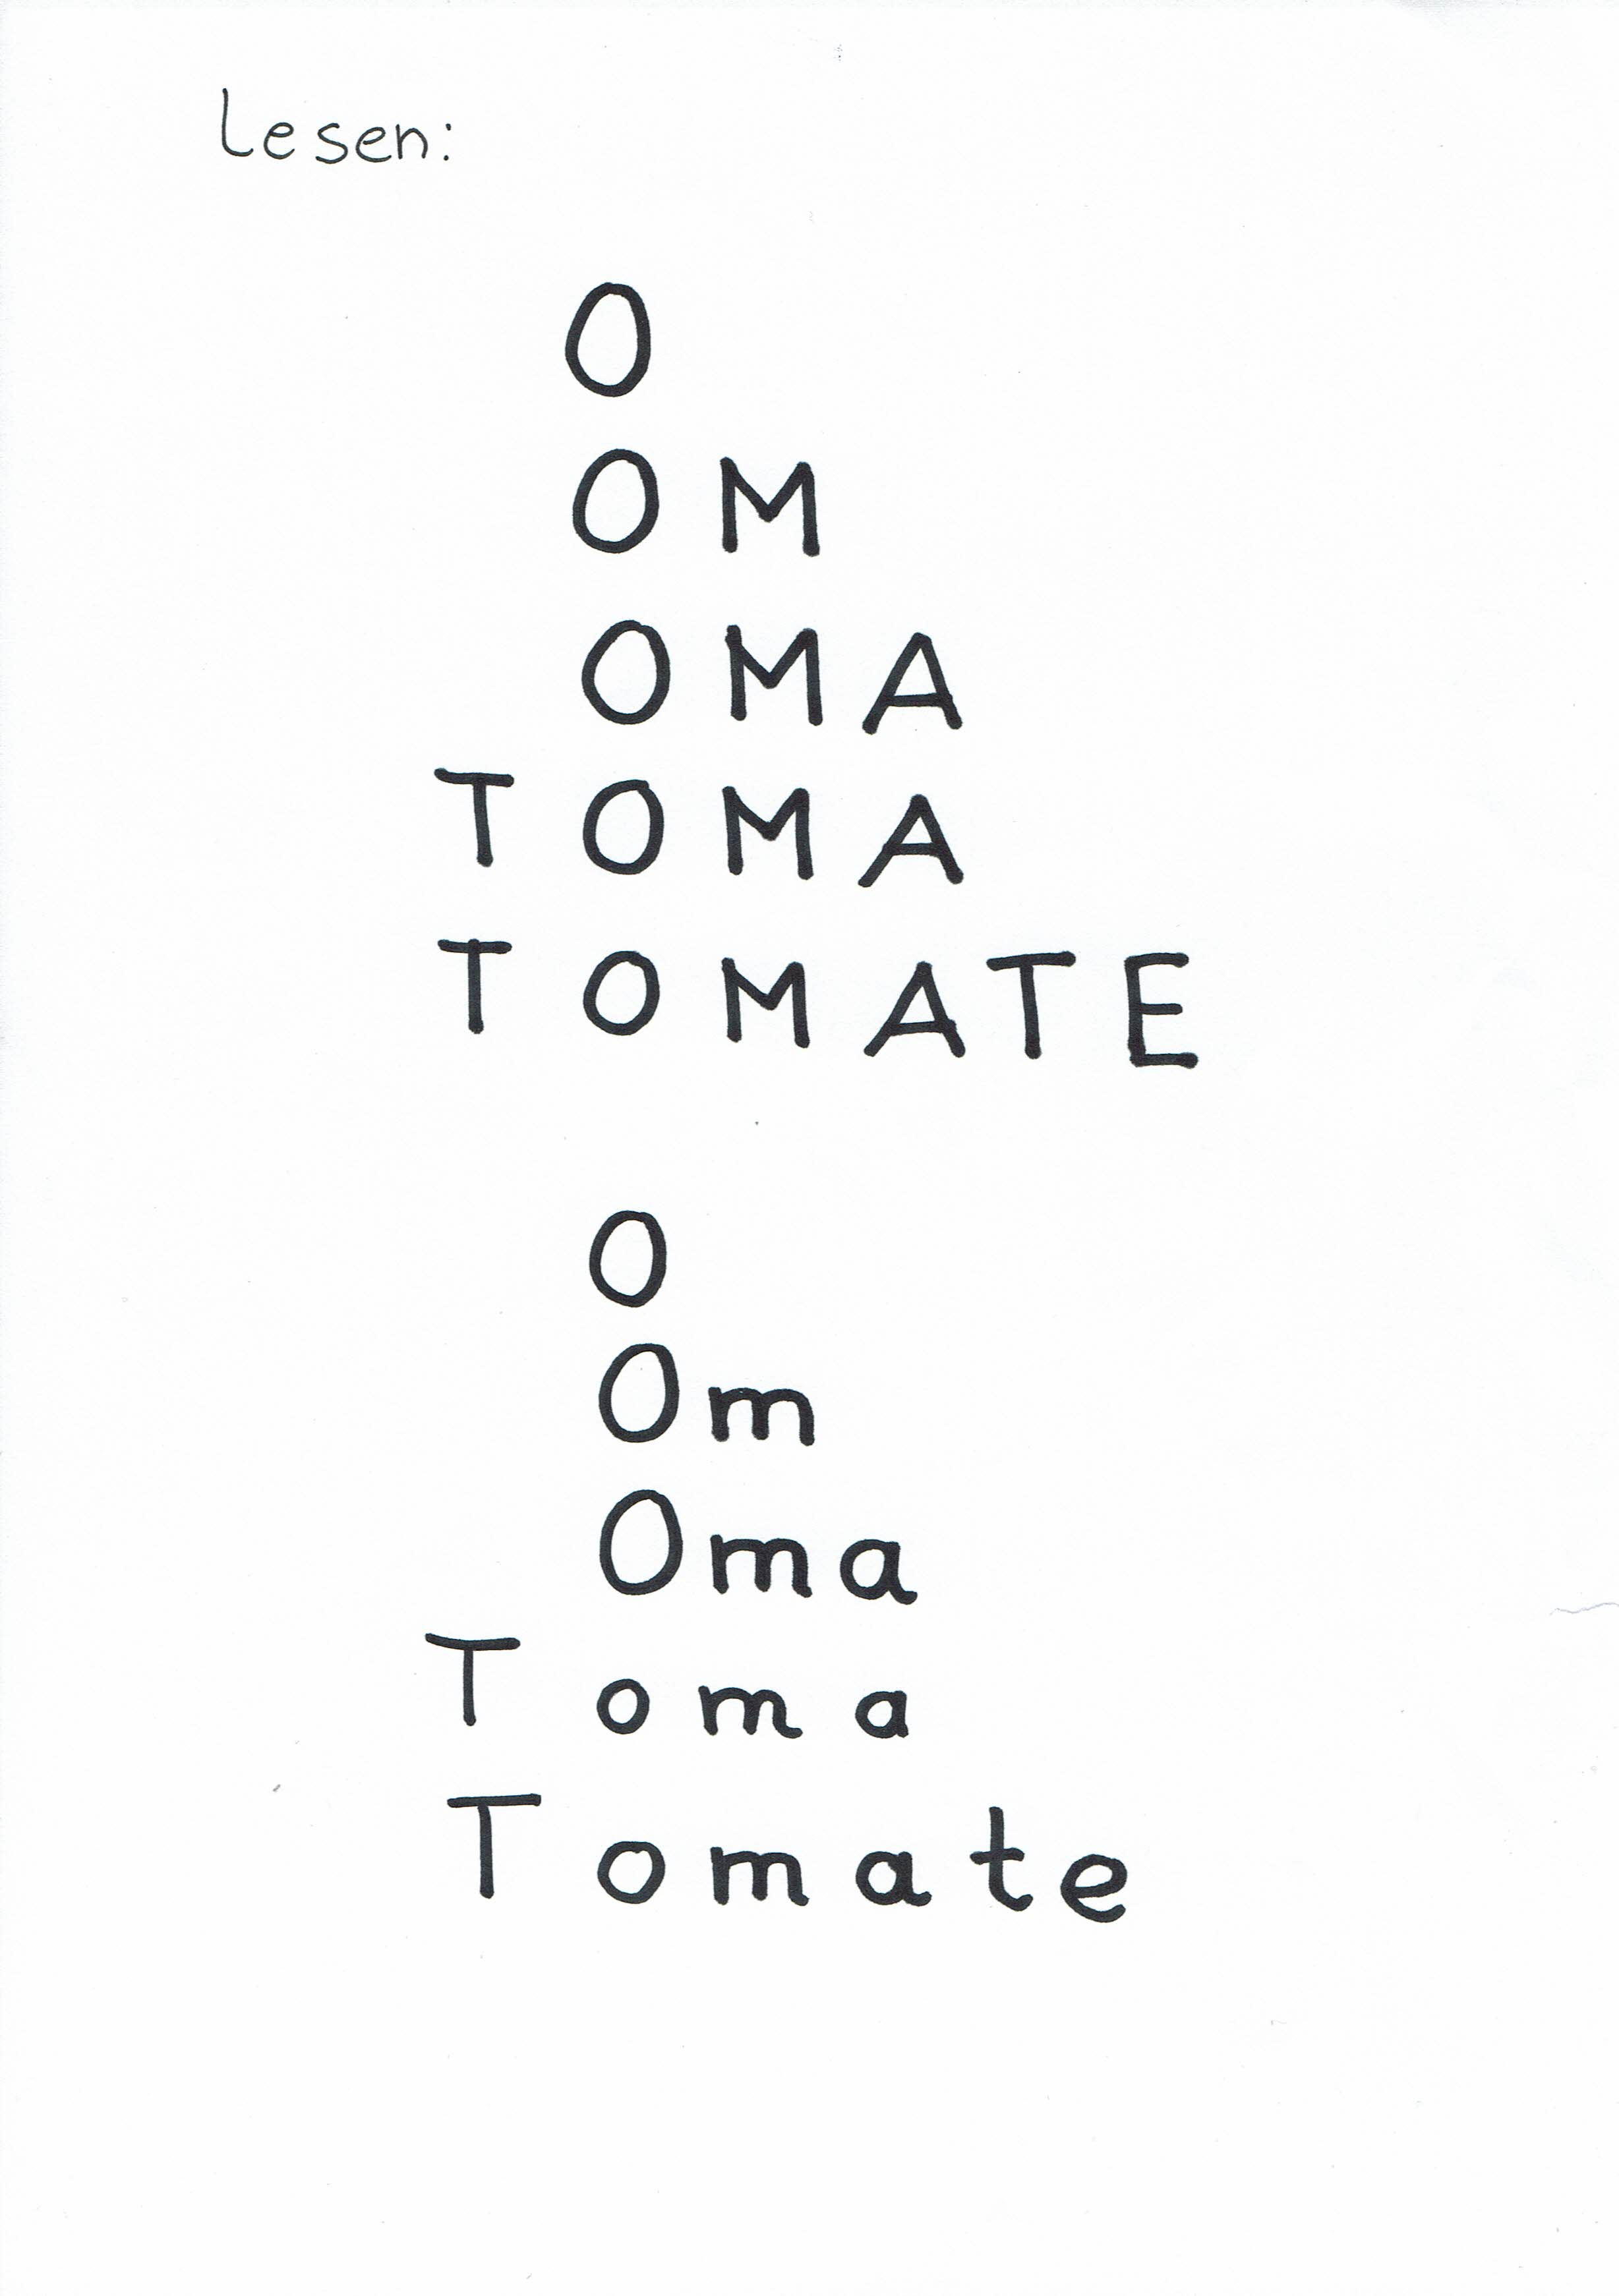 Lesen:
O
O M
O M A
T O M A
T O M A T E
O
Om
Oma
T o m a
T o m a t e